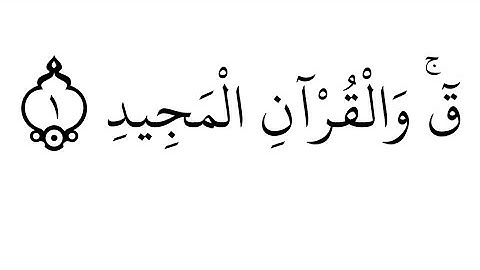 قٓ ۚ وَالْقُرْآنِ الْمَجِيدِ ١